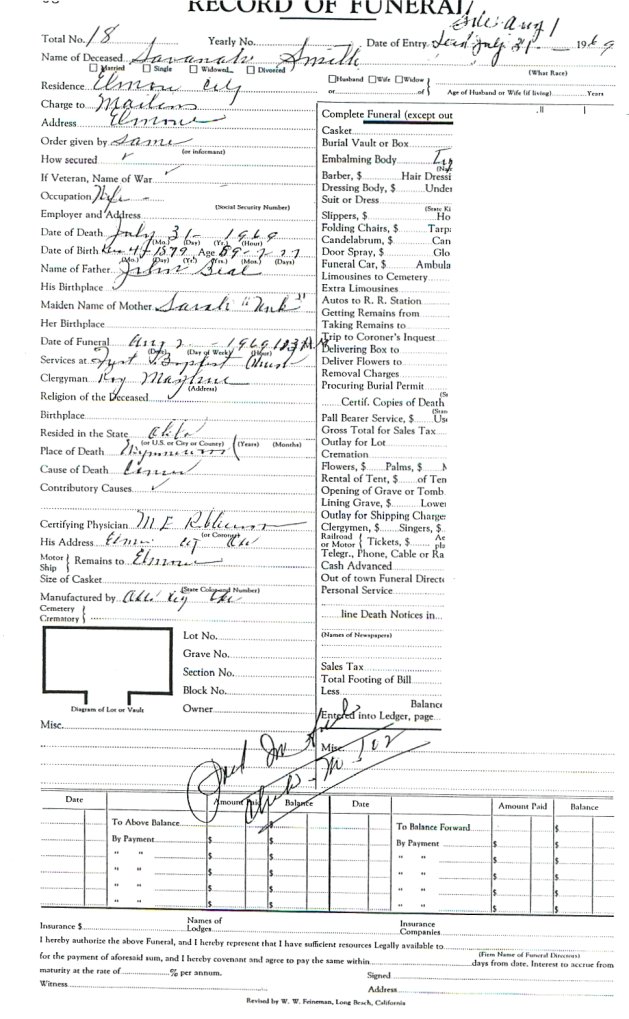 RECORD OF FUNERAL
Aug 1
Total No. 18 Yearly No. Date of Entry July 31 1969
Name of Deceased Savanah Smith
Married Single Widowed Divorced Husband Wife Widow (What Race)
Residence Elmore City or of Age of Husband or Wife (if living) Years
Charge to
Address Elmore
Order given by Same
(or informant)
How secured
If Veteran, Name of War
Occupation Wife
(Social Security Number)
Employer and Address
Date of Death July 31 - 1969
(Mo.) (Day) (Yr.) (Hour)
Date of Birth 4 - 1879 Age 89-7-27
(Mo.) (Day) (Yr.) (Yrs.) (Mos.) (Days)
Name of Father John Beal
His Birthplace
Maiden Name of Mother Sarah "Unk"
Her Birthplace
Date of Funeral Aug 2 - 1969
(Date) (Day of Week) (Hour)
Services at First Baptist Church
Clergyman Roy
(Address)
Religion of the Deceased
Birthplace
Resided in the State Okla
(or U.S. or City or County) (Years) (Months)
Place of Death
Cause of Death
Contributory Causes
Certifying Physician M E Robberson
(or Coroner)
His Address Elmore City Okla
Motor Ship Remains to Elmore
Size of Casket
(State Color and Number)
Manufactured by
Cemetery
Crematory
Lot No.
Grave No.
Section No.
Block No.
Owner
Diagram of Lot or Vault
Misc.
Complete Funeral (except out
Casket
Burial Vault or Box
Embalming Body
Barber, $ Hair Dressi
Dressing Body, $ Under
Suit or Dress
(State Ki
Slippers, $ Ho
Folding Chairs, $ Tarp
Candelabrum, $ Can
Door Spray, $ Glo
Funeral Car, $ Ambula
Limousines to Cemetery
Extra Limousines
Autos to R. R. Station
Getting Remains from
Taking Remains to
Trip to Coroner's Inquest
Delivering Box to
Deliver Flowers to
Removal Charges
Procuring Burial Permit
Certif. Copies of Death
Pall Bearer Service, $ Use
Gross Total for Sales Tax
Outlay for Lot
Cremation
Flowers, $ Palms, $
Rental of Tent, $ of Ten
Opening of Grave or Tomb
Lining Grave, $ Lowe
Outlay for Shipping Charge
Clergymen, $ Singers, $
Railroad or Motor Tickets, $
Telegr., Phone, Cable or Ra
Cash Advanced
Out of town Funeral Direct
Personal Service
line Death Notices in
(Names of Newspapers)
Sales Tax
Total Footing of Bill
Less
Balance
Entered into Ledger, page
Misc.
Date Amount Paid Balance Date Amount Paid Balance
To Above Balance $ To Balance Forward $
By Payment $ $ By Payment $ $
" " $ $ " " $ $
" " $ $ " " $ $
" " $ $ " " $ $
" " $ $ " " $ $
Insurance $ Names of Lodges Insurance Companies
I hereby authorize the above Funeral, and I hereby represent that I have sufficient resources Legally available to
(Firm Name of Funeral Directors)
for the payment of aforesaid sum, and I hereby covenant and agree to pay the same within days from date. Interest to accrue from
maturity at the rate of % per annum. Signed
Witness Address
Revised by W. W. Feineman, Long Beach, California